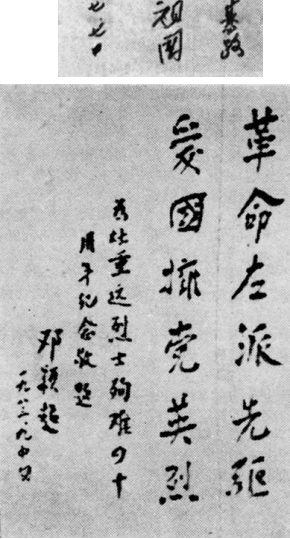 祖國
革命左派先驱
爱國擁党英烈
为杜重远烈士殉难四十
周年纪念敬题
邓颖超
一九八三.九.